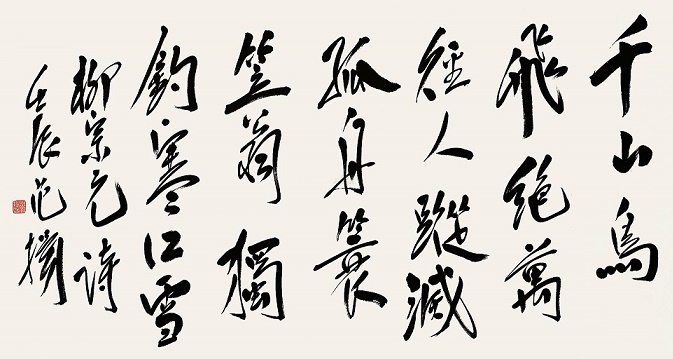 千山鳥
飛絕萬
徑人蹤滅
孤舟簑
笠翁獨
釣寒江雪
柳宗元詩
壬辰范